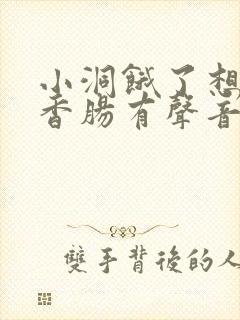 小洞餓了想
香腸有聲音
雙手背後的人